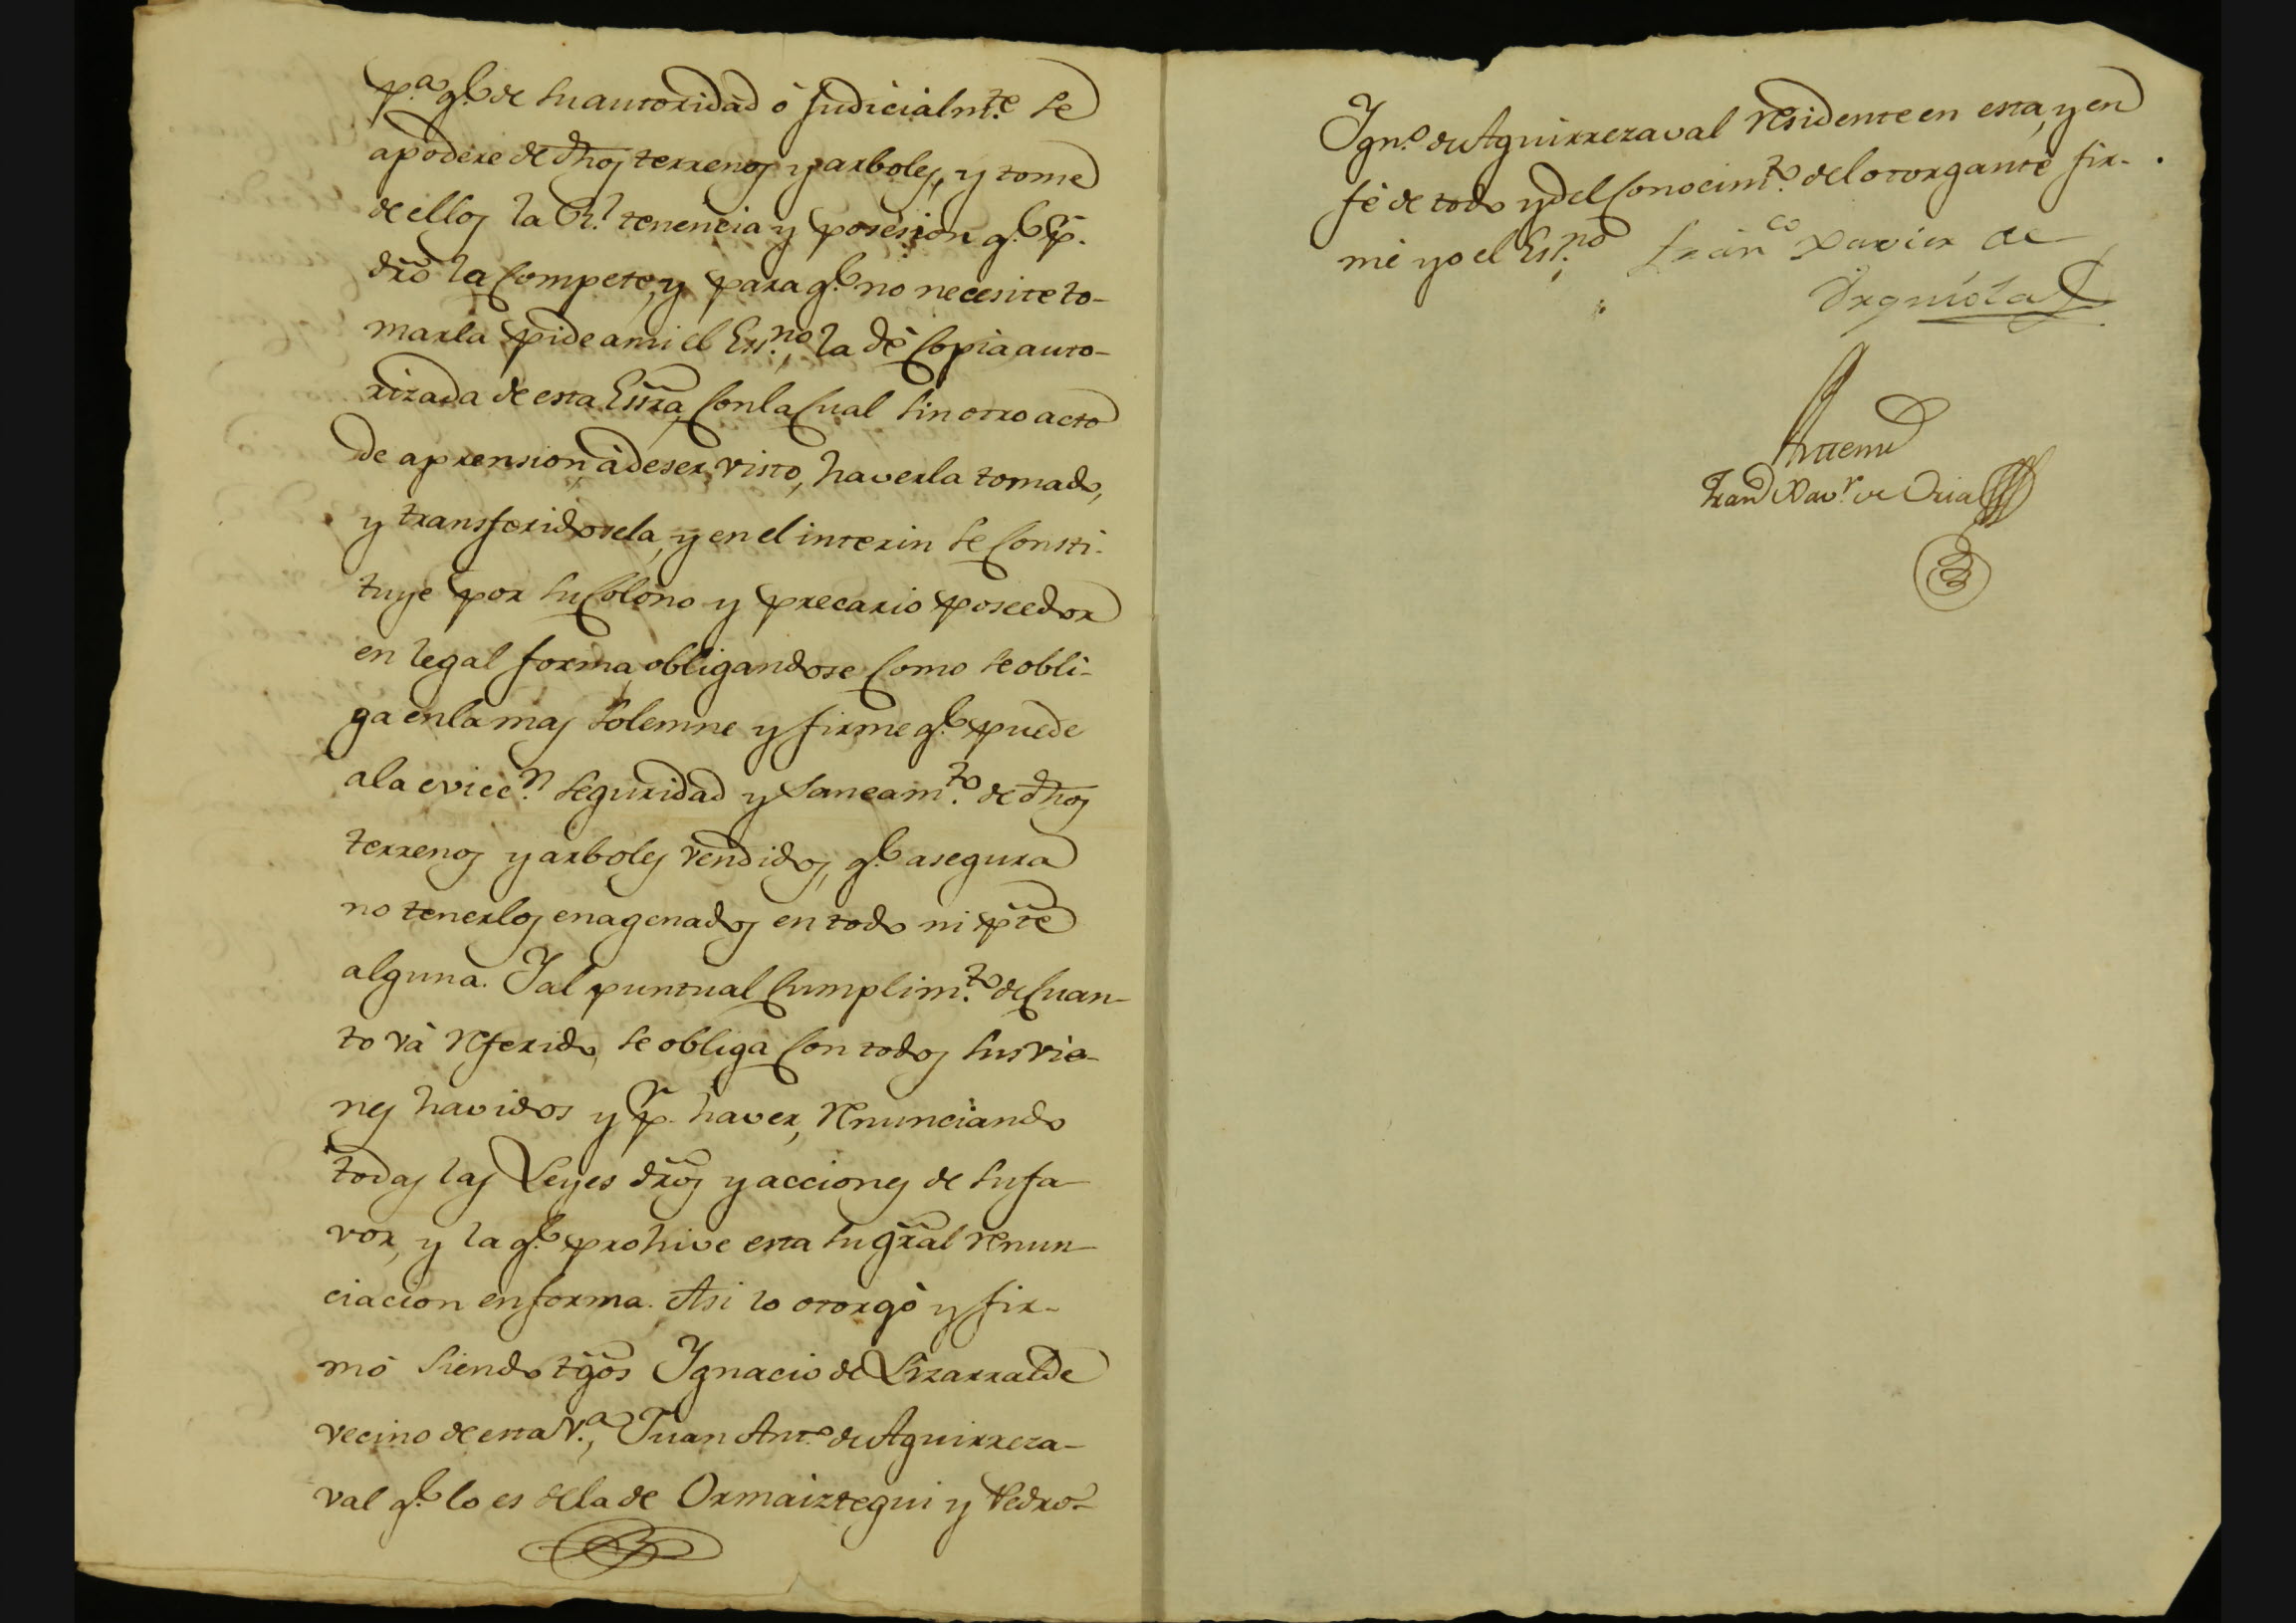 p.ª q.e de su autoridad ó judicialm.te se
apodere de dhos terrenos y arboles, y tome
de ellos la R.l tenencia y posesion q.e p.r
dro la compete, y para q.e no necesite to-
marla pide a mi el Ess.no la dè copia auto-
rizada de esta Essra, con la cual sin otro acto
de aprension, à de ser visto, haverla tomado,
y transferidosela, y en el interin se consti-
tuye por su colono y precario poseedor
en legal forma, obligandose como se obli-
ga en la mas solemne y firme q.e puede
a la evicc.n seguridad y saneam.to de dhos
terrenos y arboles vendidos, q.e asegura
no tenerlos enagenados en todo ni pte
alguna. Y al puntual cumplim.to de cuan-
to và referido, se obliga con todos sus vie-
nes havidos y p.r haver, renunciando
todas las Leyes dros y acciones de su fa-
vor, y la q.e prohive esta su gral renun-
ciacion en forma. Asi lo otorgò y fir-
mò siendo tgos Ygnacio de Lizarralde
vecino de esta V.ª, Juan Ant.o de Aguirreza-
val q.e lo es de la de Ormaiztegui y Pedro
Ygn.o de Aguirrezaval residente en esta, y en
fè de todo y del conocim.to del otorgante fir-
mè yo el Es.no Fran.co Xavier de
Urquiola
Antemi
Fran.co Xav.r de Oria